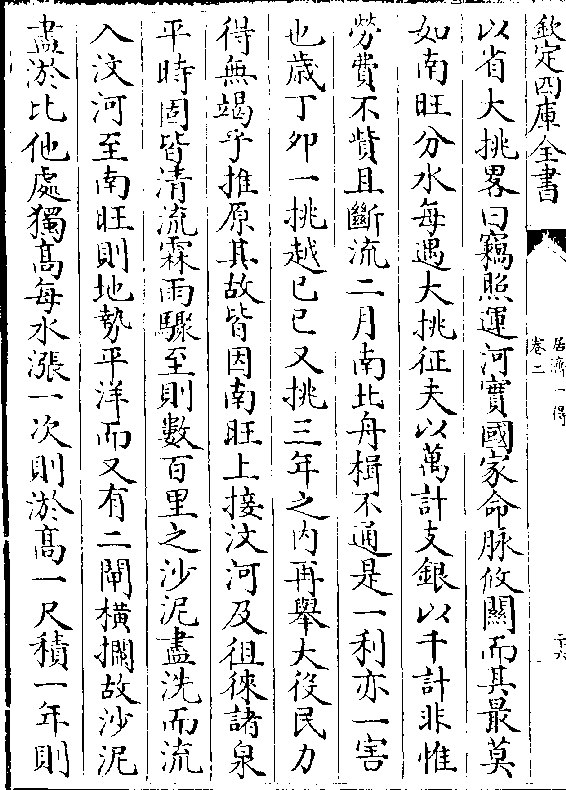 欽定四庫全書
居濟一得
卷二
二十六
以省大挑畧曰竊照運河實國家命脉攸關而其最莫
如南旺分水每遇大挑征夫以萬計支銀以千計非惟
勞費不貲且斷流二月南北舟楫不通是一利亦一害
也歲丁卯一挑越己巳又挑三年之内再舉大役民力
得無竭乎推原其故皆因南旺上接汶河及徂徠諸泉
平時固皆清流霖雨驟至則數百里之沙泥盡洗而流
入汶河至南旺則地勢平洋而又有二閘橫攔故沙泥
盡淤比他處獨髙每水漲一次則淤髙一尺積一年則